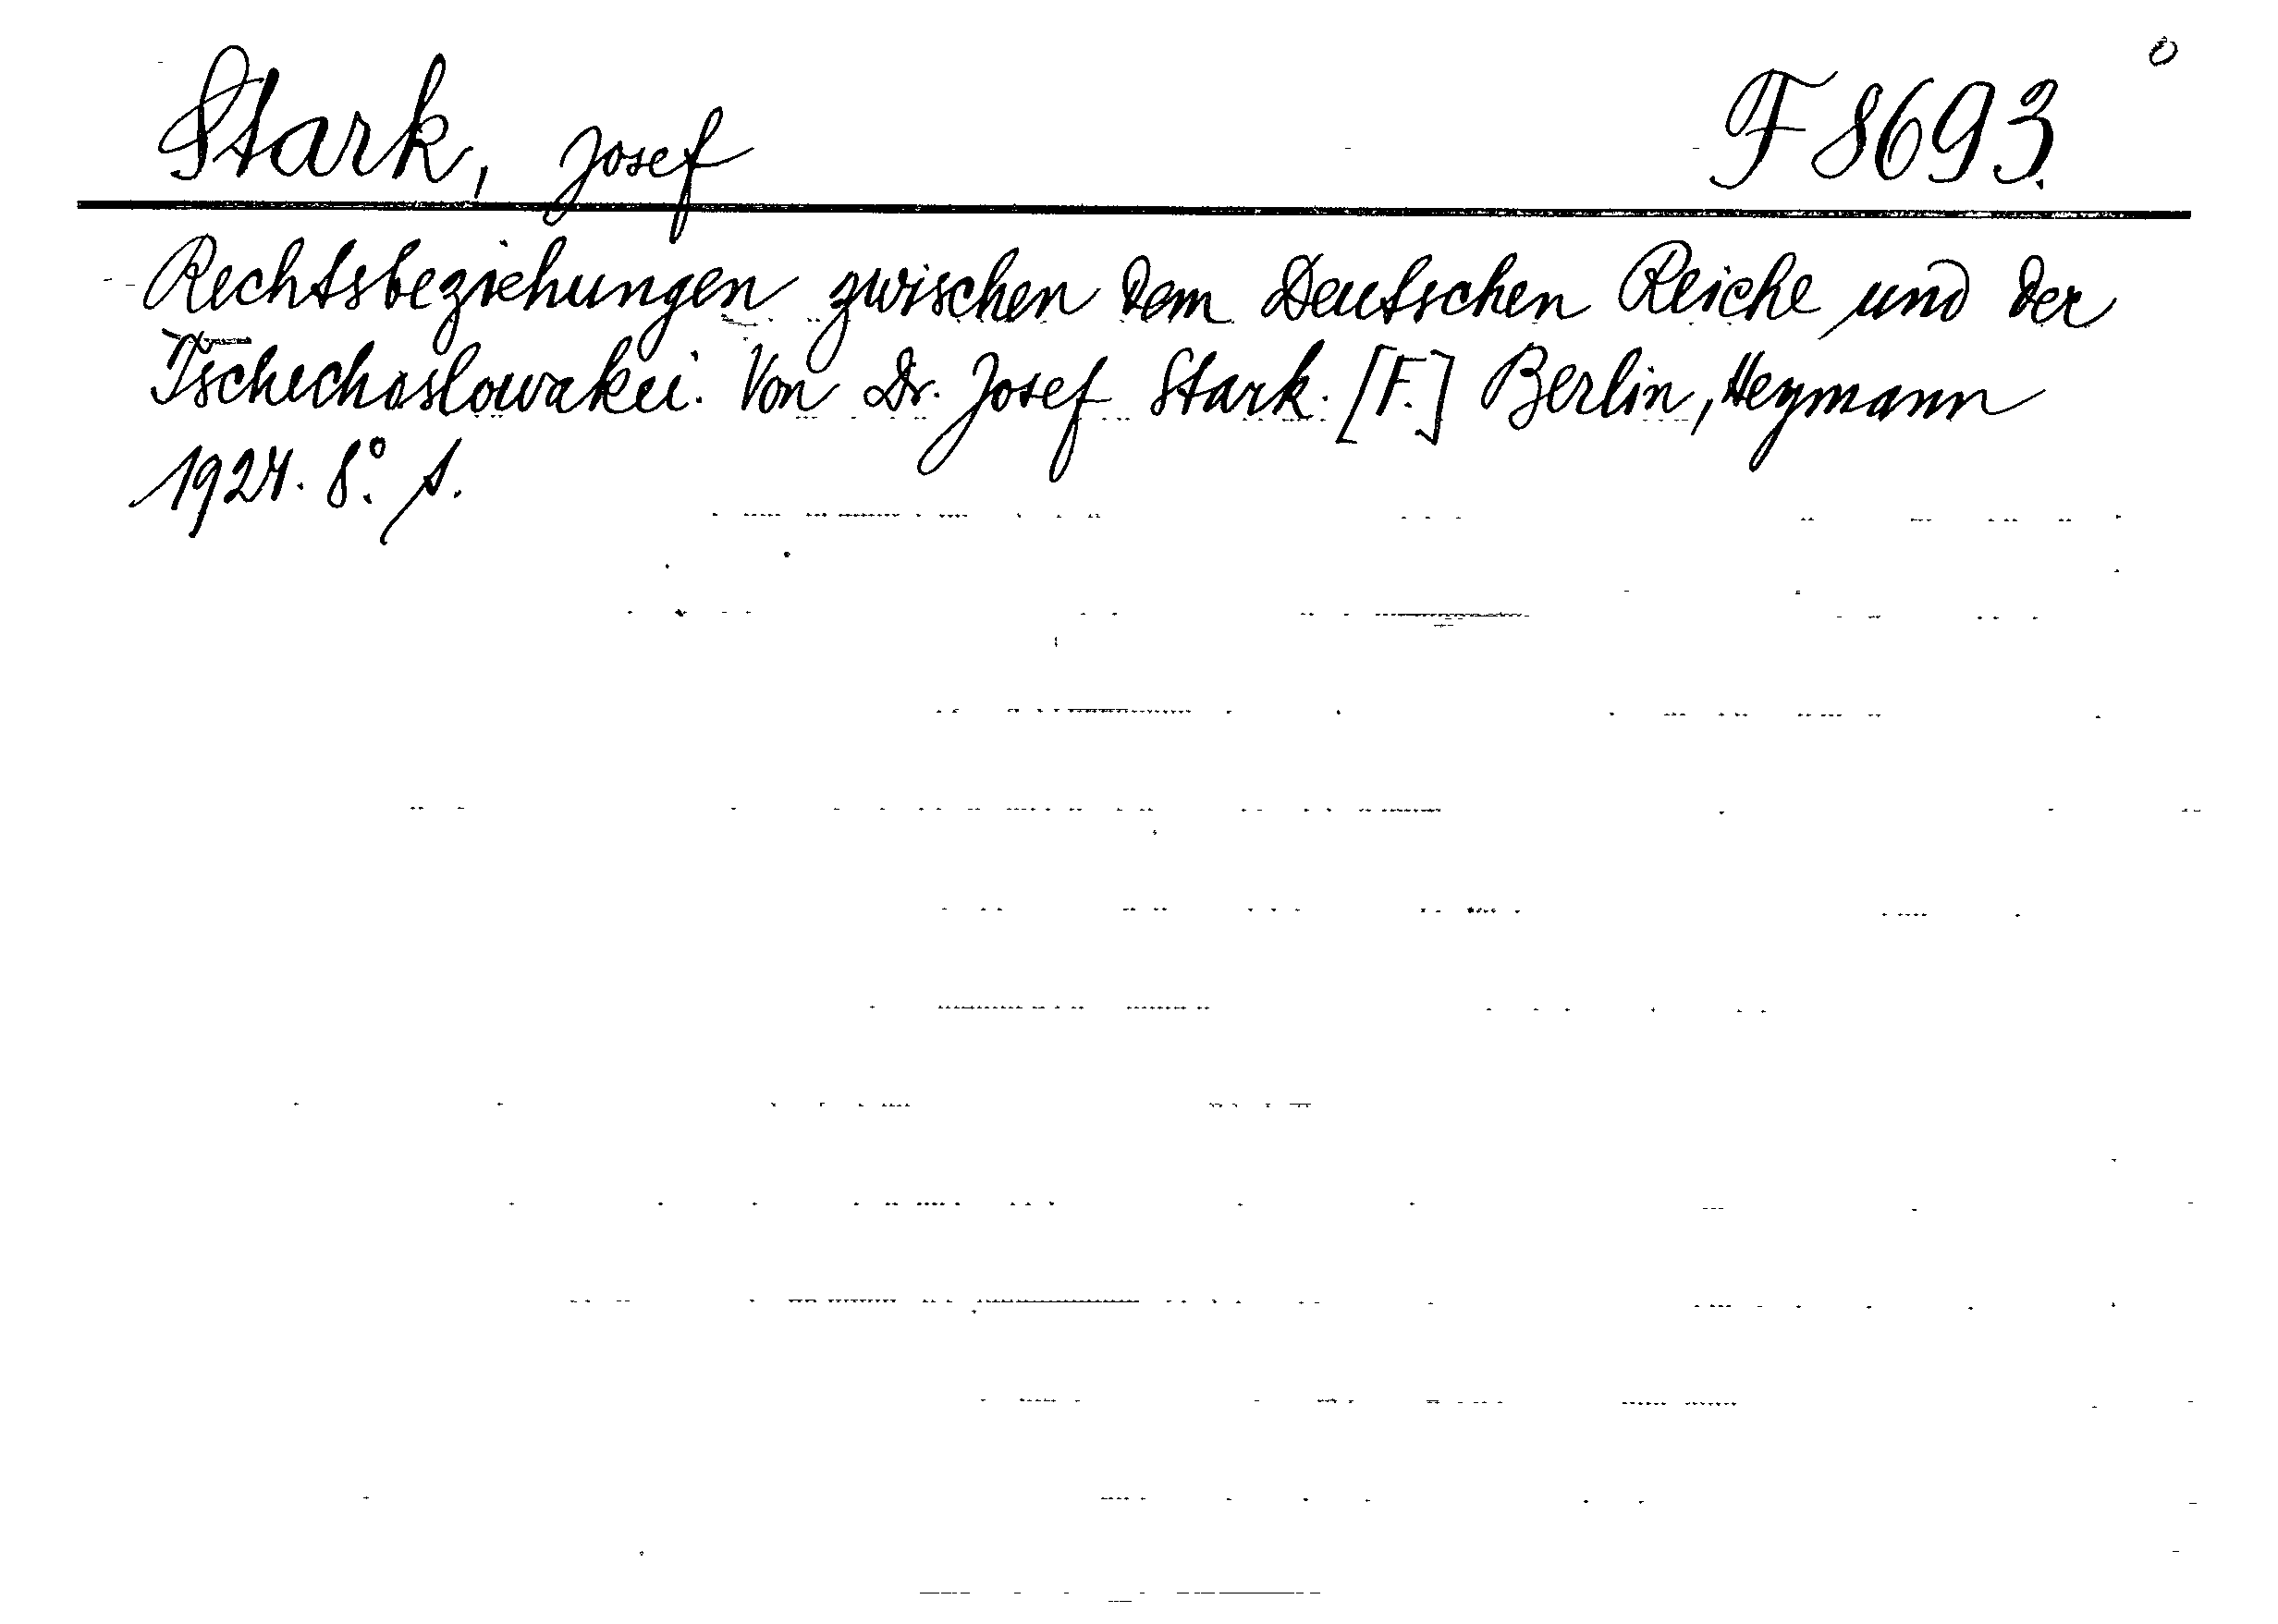 Stark, Josef F 8693.
Rechtsbeziehungen zwischen dem Deutschen Reiche und der
Tschechoslowakei. Von Dr. Josef Stark. [F.] Berlin, Heymann
1924. 8°.